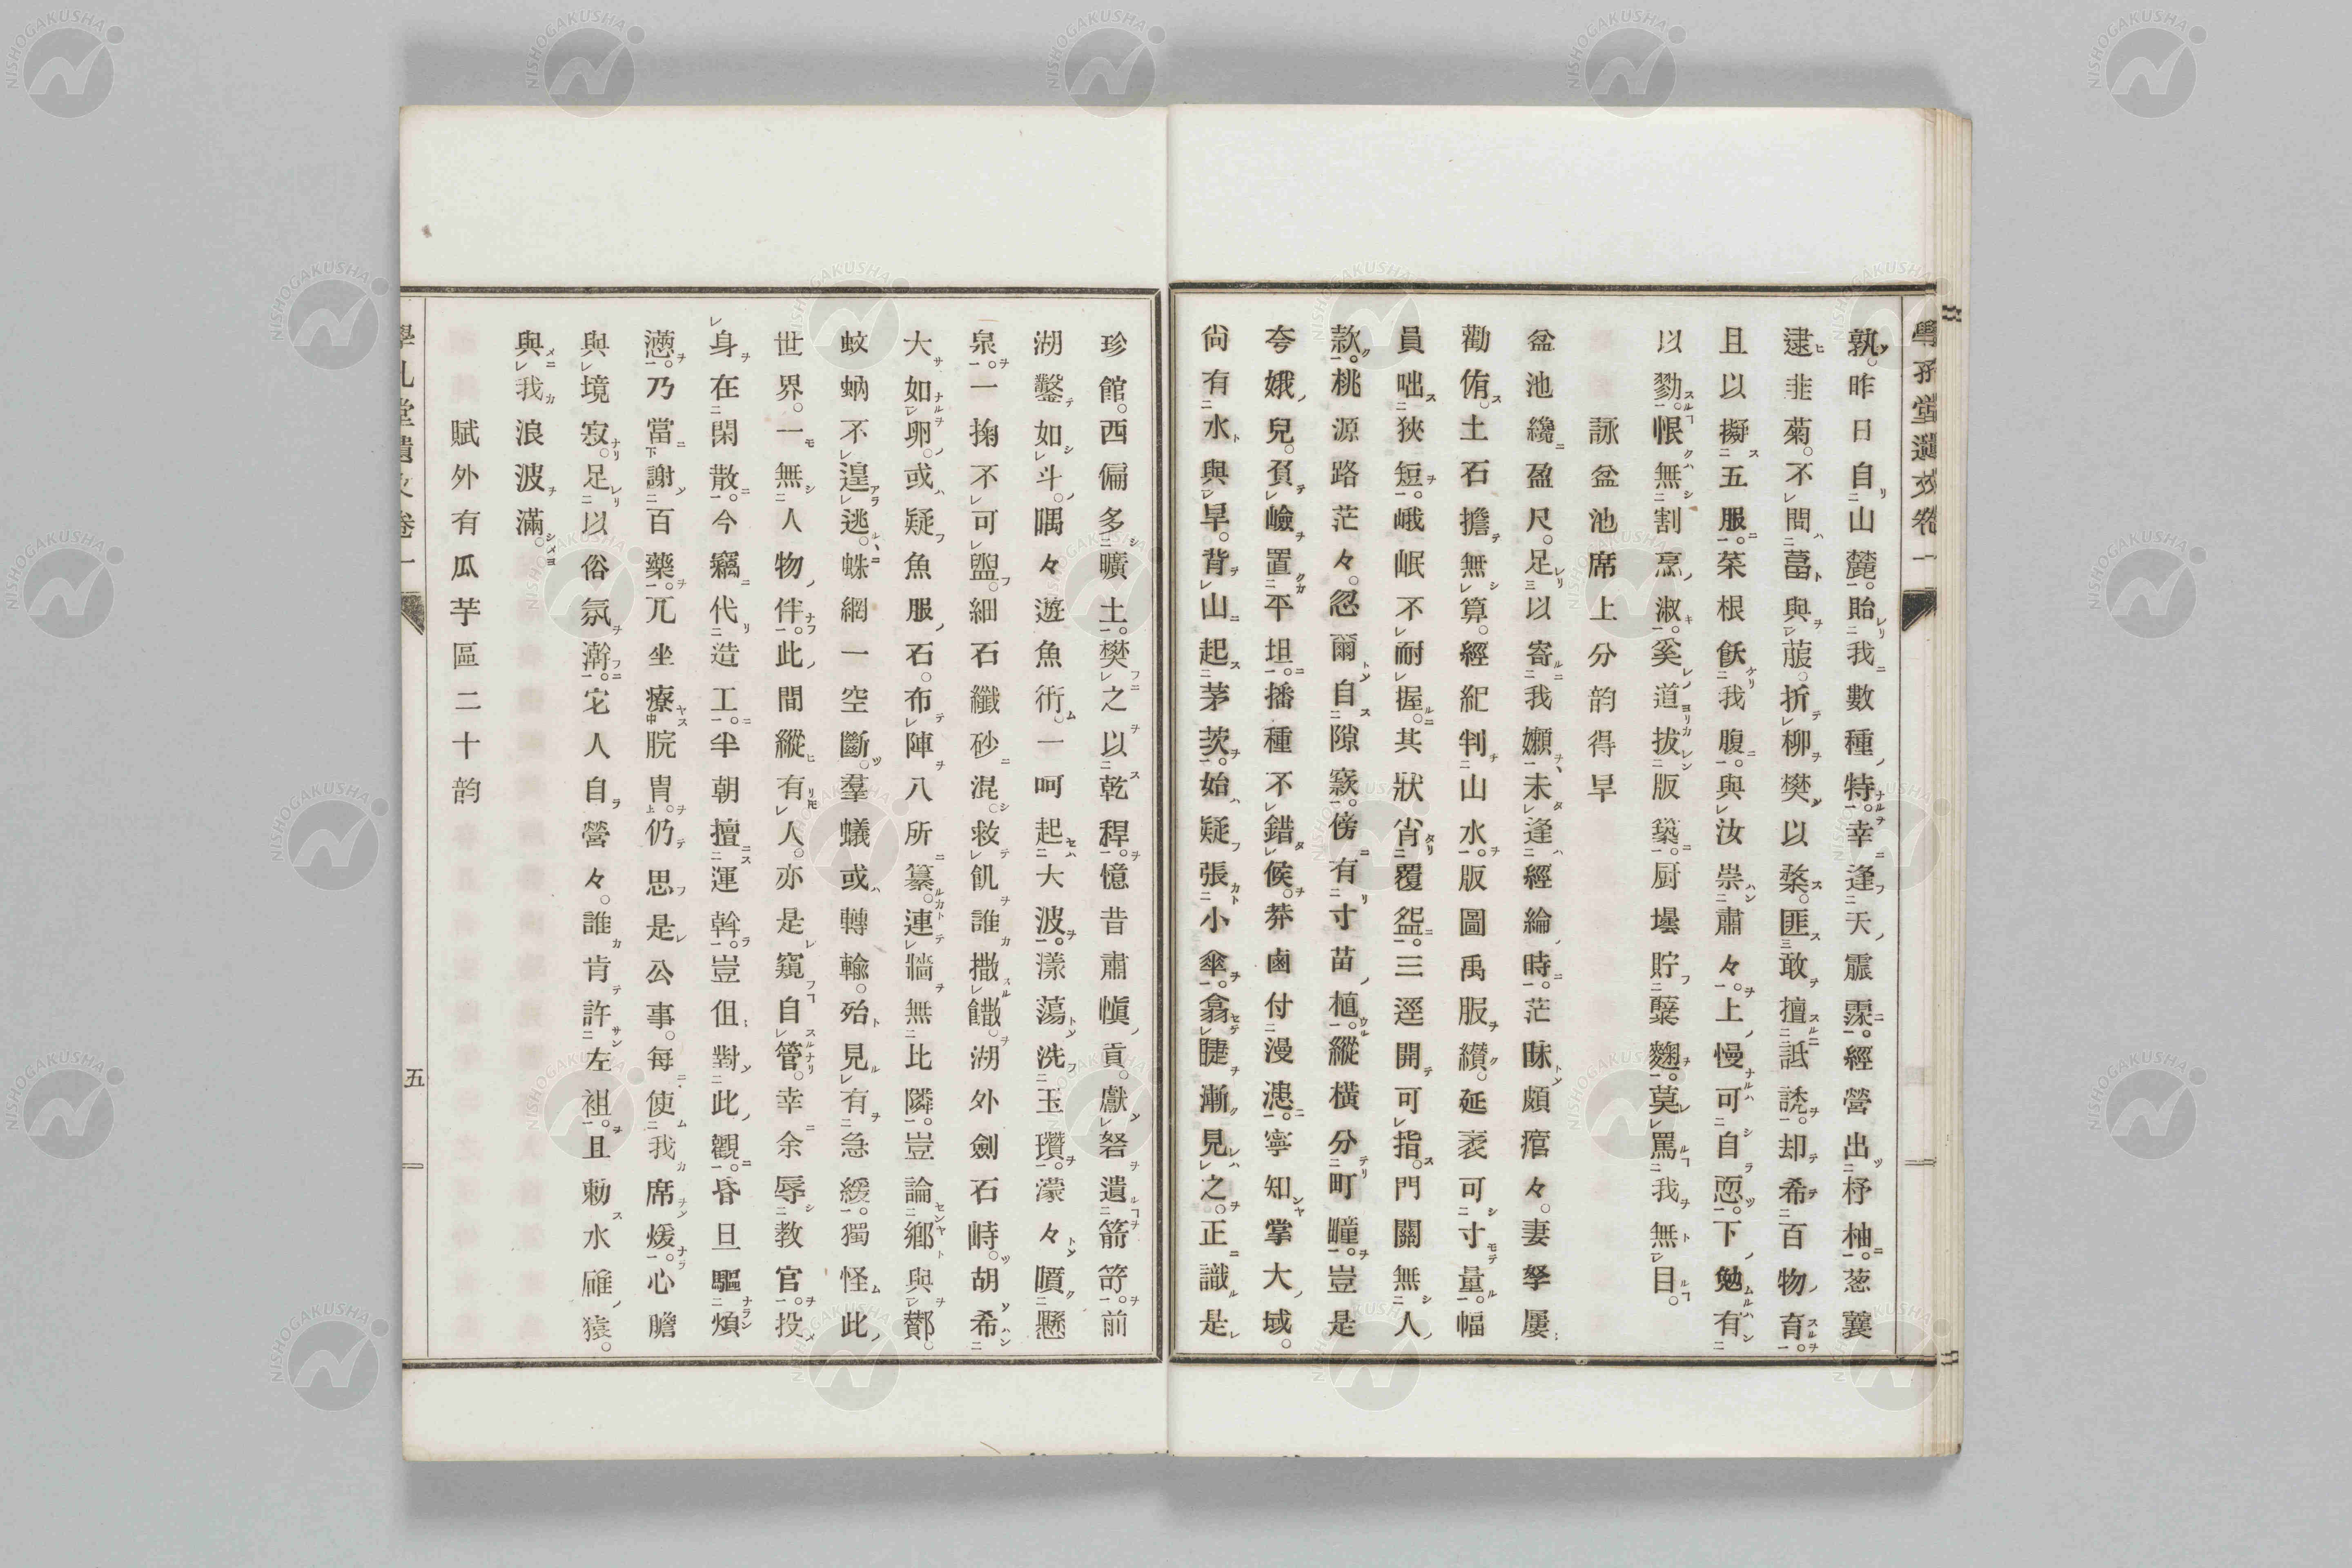 學孔堂遺文卷一
孰。昨日自山麓。貽我數種特。幸逢天霢霂。經營出杼柚。葱蘘
逮韭菊。不問葍與菔。折柳樊以棻。匪敢擅詆諕。却希百物育。
且以擬五服。菜根飫我腹。與汝祟肅々。上慢可自恧。下勉有
以勠。恨無割烹淑。奚道拔版築。厨壜貯糵麴。莫罵我無目。
詠盆池席上分韵得早
盆池纔盈尺。足以寄我嬾。未逢經綸時。茫昧頗痯々。妻孥屢
勸侑。土石擔無算。經紀判山水。版圖禹服纘。延袤可寸量。幅
員咄狹短。峨岷不耐握。其狀肖覆盌。三逕開可指。門關無人
款。桃源路茫々。忽爾自隙窾。傍有寸苗植。縱橫分町疃。豈是
夸娥兒。負嶮置平坦。播種不錯候。莽鹵付漫漶。寧知掌大域。
尙有水與旱。背山起茅茨。始疑張小傘。翕睫漸見之。正識是
珍館。西偏多曠土。樊之以乾稈。憶昔肅愼貢。獻砮遺箭笴。前
湖鑿如斗。喁々遊魚衎。一呵起大波。漾蕩洗玉瓚。濛々噴懸
泉。一掬不可盥。細石纖砂混。救飢誰撒饊。湖外劍石峙。胡希
大如卵。或疑魚服石。布陣八所纂。連牆無比隣。豈論鄕與酇。
蚊蚋不遑逃。蛛網一空斷。羣蟻或轉輸。殆見有急緩。獨怪此
世界。一無人物伴。此間縱有人。亦是窺自管。幸余辱教官。投
身在閑散。今竊代造工。半朝擅運斡。豈伹對此觀。昏旦驅煩
懣。乃當謝百藥。兀坐療脘胃。仍思是公事。每使我席煖。心膽
與境寂。足以俗氛澣。它人自營々。誰肯許左袒。且勅水確猿。
與我浪波滿。
賦外有瓜芋區二十韵
學孔堂遺文卷一
五